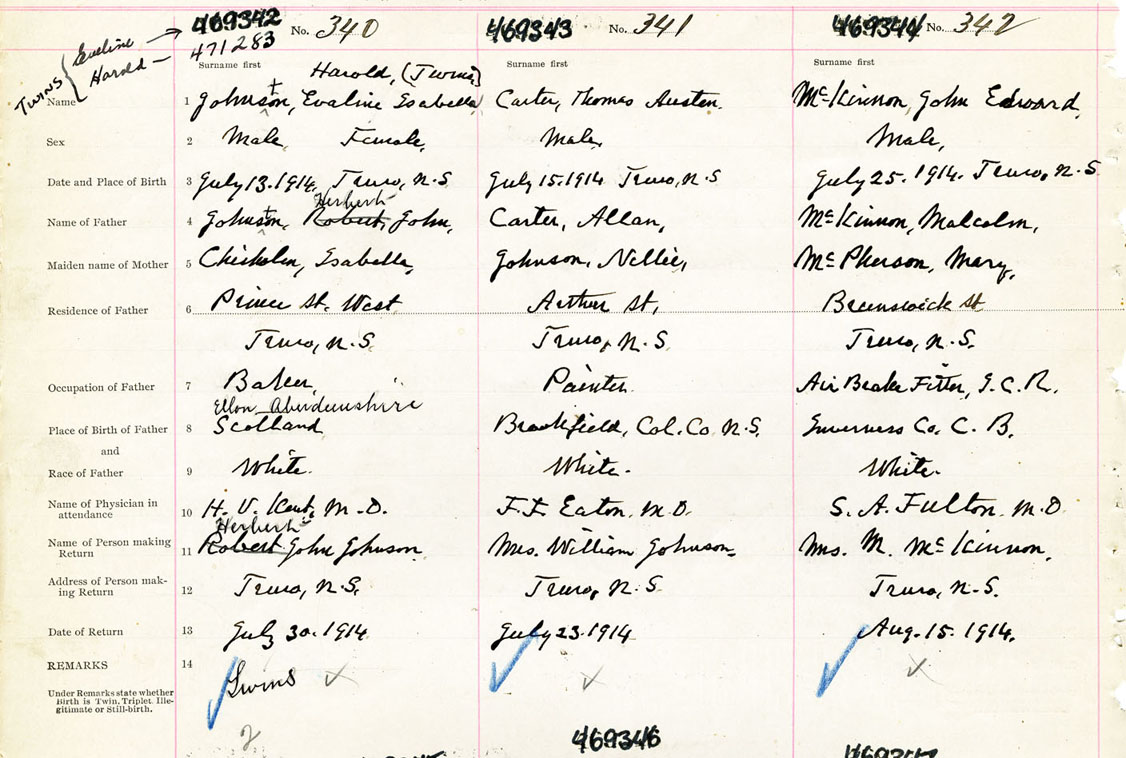 469342 No. 340 469343 No. 341 469344 No. 342
471283
TWINS { Eveline
Harold
Surname first Surname first Surname first
Harold, (Twins)
Name 1 Johnston, Evaline Isabella Carter, Thomas Austen. McKinnon, John Edward.
Sex 2 Male, Female, Male, Male,
Date and Place of Birth 3 July 13. 1914, Truro, N.S. July 15. 1914 Truro, N.S July 25. 1914. Truro, N.S
Herbert
Name of Father 4 Johnston, Robert, John, Carter, Allan, McKinnon, Malcolm,
Maiden name of Mother 5 Chisholm, Isabella, Johnson, Nellie, McPherson, Mary,
Residence of Father 6 Prince St. West Arthur St, Brunswick St
Truro, N.S. Truro, N.S. Truro, N.S.
Occupation of Father 7 Baker, Painter. Air Brake Fitter, I.C.R.
Ellon Aberdeenshire
Place of Birth of Father 8 Scotland Brookfield, Col. Co. N.S. Inverness Co. C.B.
and
Race of Father 9 White. White. White.
Name of Physician in
attendance 10 H. V. Kent, M.D. F.F. Eaton, M.D. S. A. Fulton, M.D
Herbert
Name of Person making
Return 11 Robert John Johnson, Mrs. William Johnson, Mrs. M. McKinnon,
Address of Person mak-
ing Return 12 Truro, N.S. Truro, N.S. Truro, N.S.
Date of Return 13 July 30. 1914 July 23. 1914 Aug. 15. 1914.
REMARKS 14 Twins
Under Remarks state whether
Birth is Twin, Triplet, Ille-
gitimate or Still-birth.
2
469346